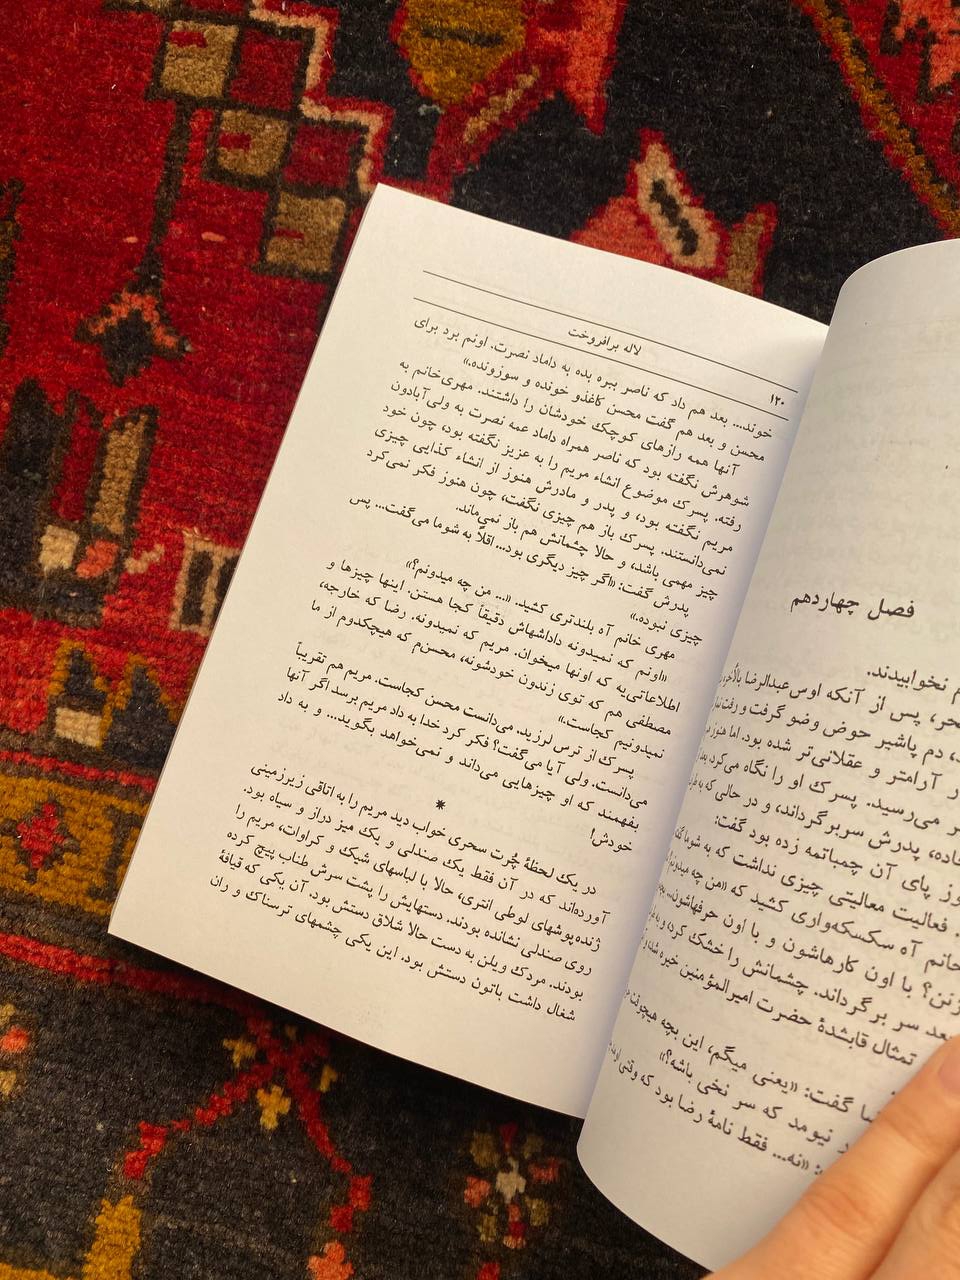 فصل چهاردهم
نخوابیدند.
پس از آنکه اوس عبدالرضا
دم پاشیر حوض وضو گرفت و رفت
آرامتر و عقلانی‌تر شده بود. اما هنوز
می‌رسید. پسرک او را نگاه می‌کرد.
پدرش سربرگرداند، و در حالی که
پای آن چمباتمه زده بود گفت:
فعالیت معالیتی چیزی نداشت که به شوما
خانم آه سکسکه‌واری کشید که «من چه میدونم
با اون کارهاشون و با اون حرفهاشون...
سر برگرداند. چشمانش را خشک کرد، و به
تمثال قابشدهٔ حضرت امیرالمؤمنین خیره شد،
گفت: «یعنی میگم، این بچه هیچوقت
نیومد که سر نخی باشه؟»
«نه... فقط نامهٔ رضا بود که وقتی
۱۲۰ لاله برافروخت
خوند... بعد هم داد که ناصر ببره بده به داماد نصرت. اونم برد برای
محسن و بعد هم گفت محسن کاغذو خونده و سوزونده.»
آنها همه رازهای کوچک خودشان را داشتند. مهری‌خانم به
شوهرش نگفته بود که ناصر همراه داماد عمه نصرت به ولی‌آبادون
رفته. پسرک موضوع انشاء مریم را به عزیز نگفته بود، چون خود
مریم نگفته بود، و پدر و مادرش هنوز از انشاء کذایی چیزی
نمی‌دانستند. پسرک باز هم چیزی نگفت، چون هنوز فکر نمی‌کرد
چیز مهمی باشد، و حالا چشمانش هم باز نمی‌ماند.
پدرش گفت: «اگر چیز دیگری بود... اقلاً به شوما می‌گفت... پس
چیزی نبوده.»
مهری خانم آه بلندتری کشید. «... من چه میدونم؟»
«اونم که نمیدونه داداشهاش دقیقاً کجا هستن. اینها چیزها و
اطلاعاتی‌یه که اونها میخوان. مریم که نمیدونه. رضا که خارجه،
مصطفی هم که توی زندون خودشونه، محسنم که هیچکدوم از ما
نمیدونیم کجاست.»
پسرک از ترس لرزید. می‌دانست محسن کجاست. مریم هم تقریباً
می‌دانست. ولی آیا می‌گفت؟ فکر کرد خدا به داد مریم برسد اگر آنها
بفهمند که او چیزهایی می‌داند و نمی‌خواهد بگوید... و به داد
خودش!
*
در یک لحظهٔ چُرت سحری خواب دید مریم را به اتاقی زیرزمینی
آورده‌اند که در آن فقط یک صندلی و یک میز دراز و سیاه بود.
ژنده‌پوشهای لوطی انتری، حالا با لباسهای شیک و کراوات، مریم را
روی صندلی نشانده بودند. دستهایش را پشت سرش طناب پیچ کرده
بودند. مردک ویلن به دست حالا شلاق دستش بود. آن یکی که قیافهٔ
شغال داشت باتون دستش بود. این یکی چشمهای ترسناک و ران